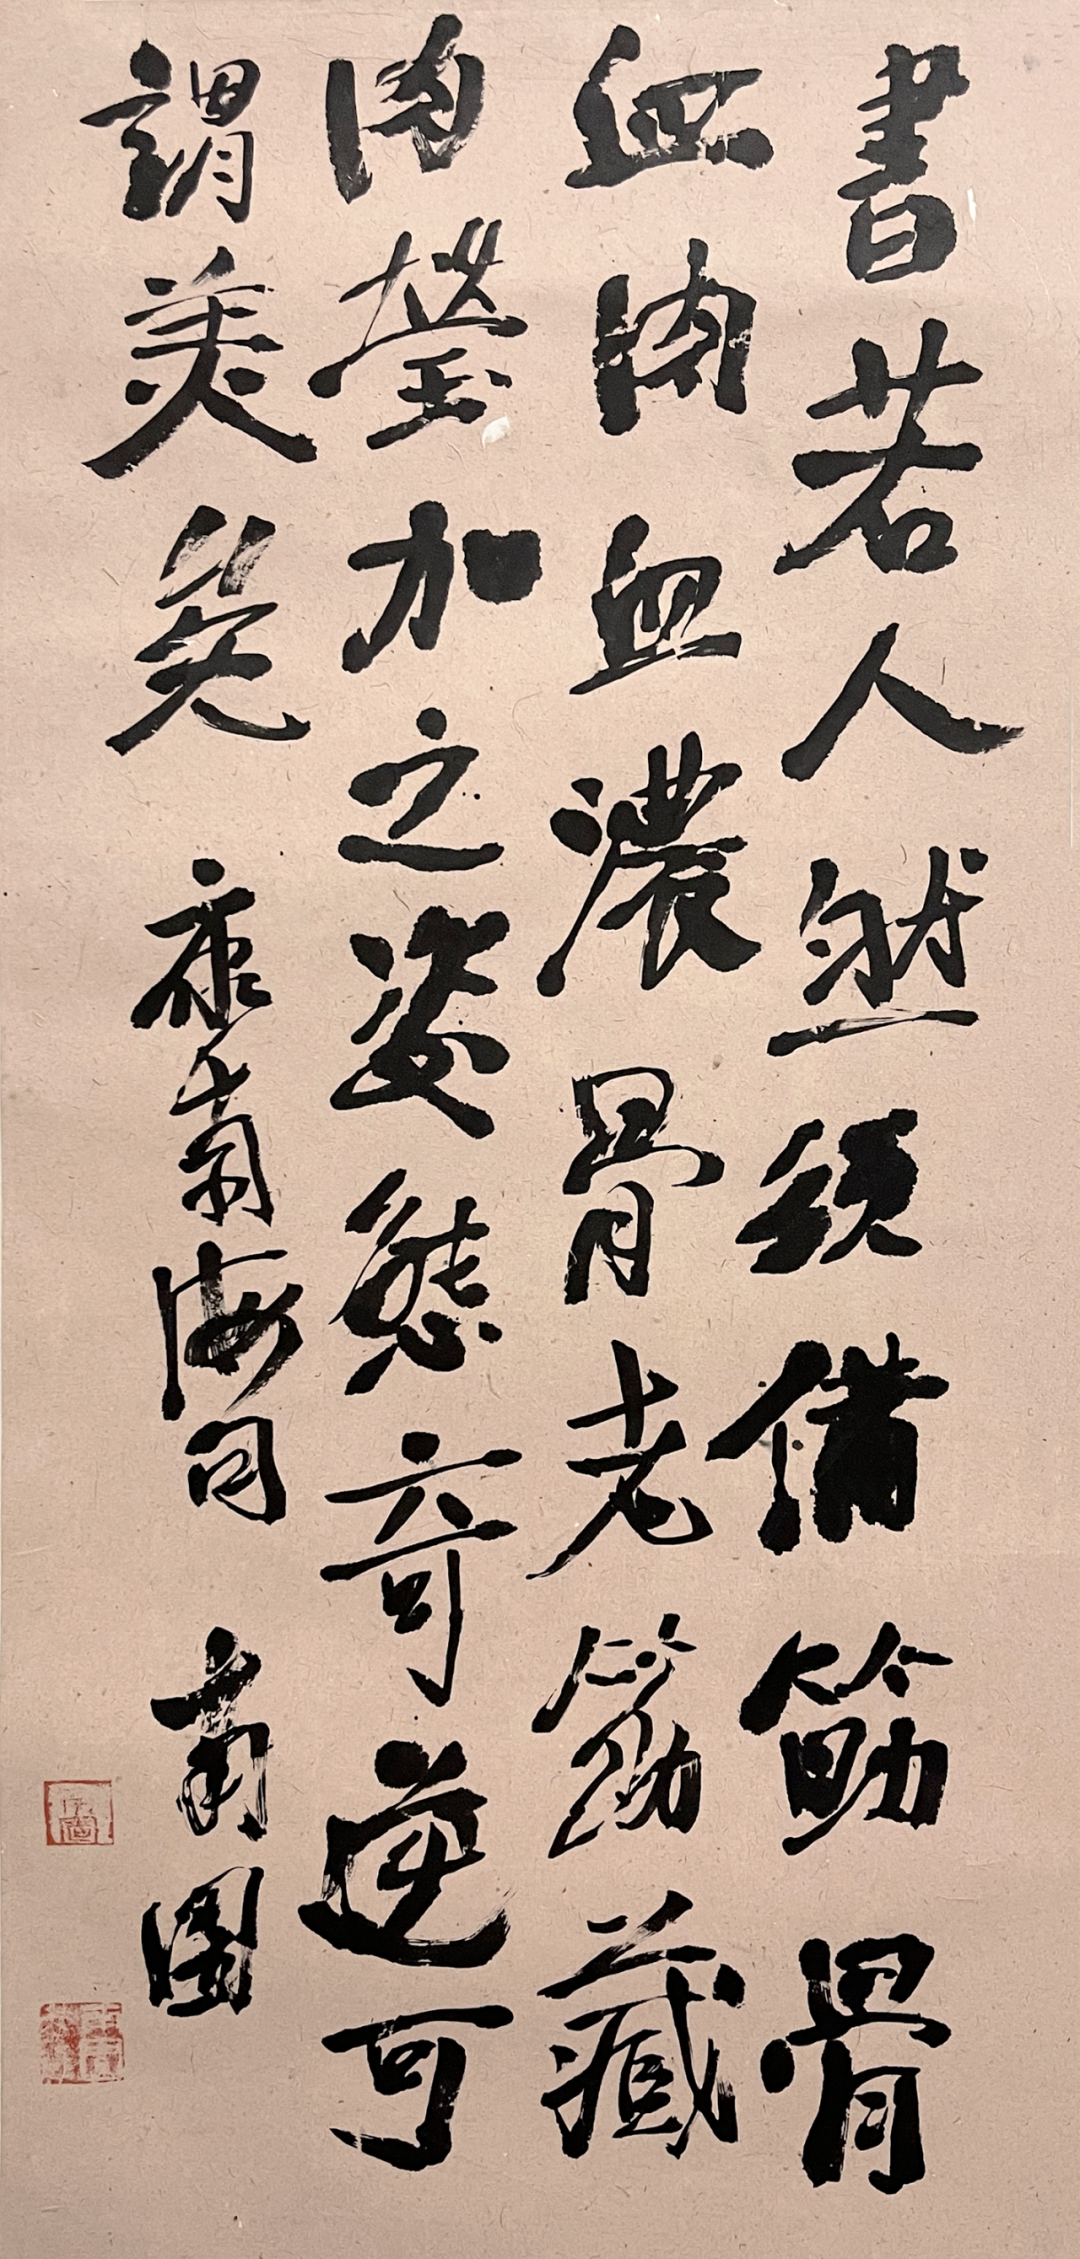 書若人然須備筋骨
血肉血濃骨老筋藏
肉瑩加之姿態奇逸可
謂美矣 康南海